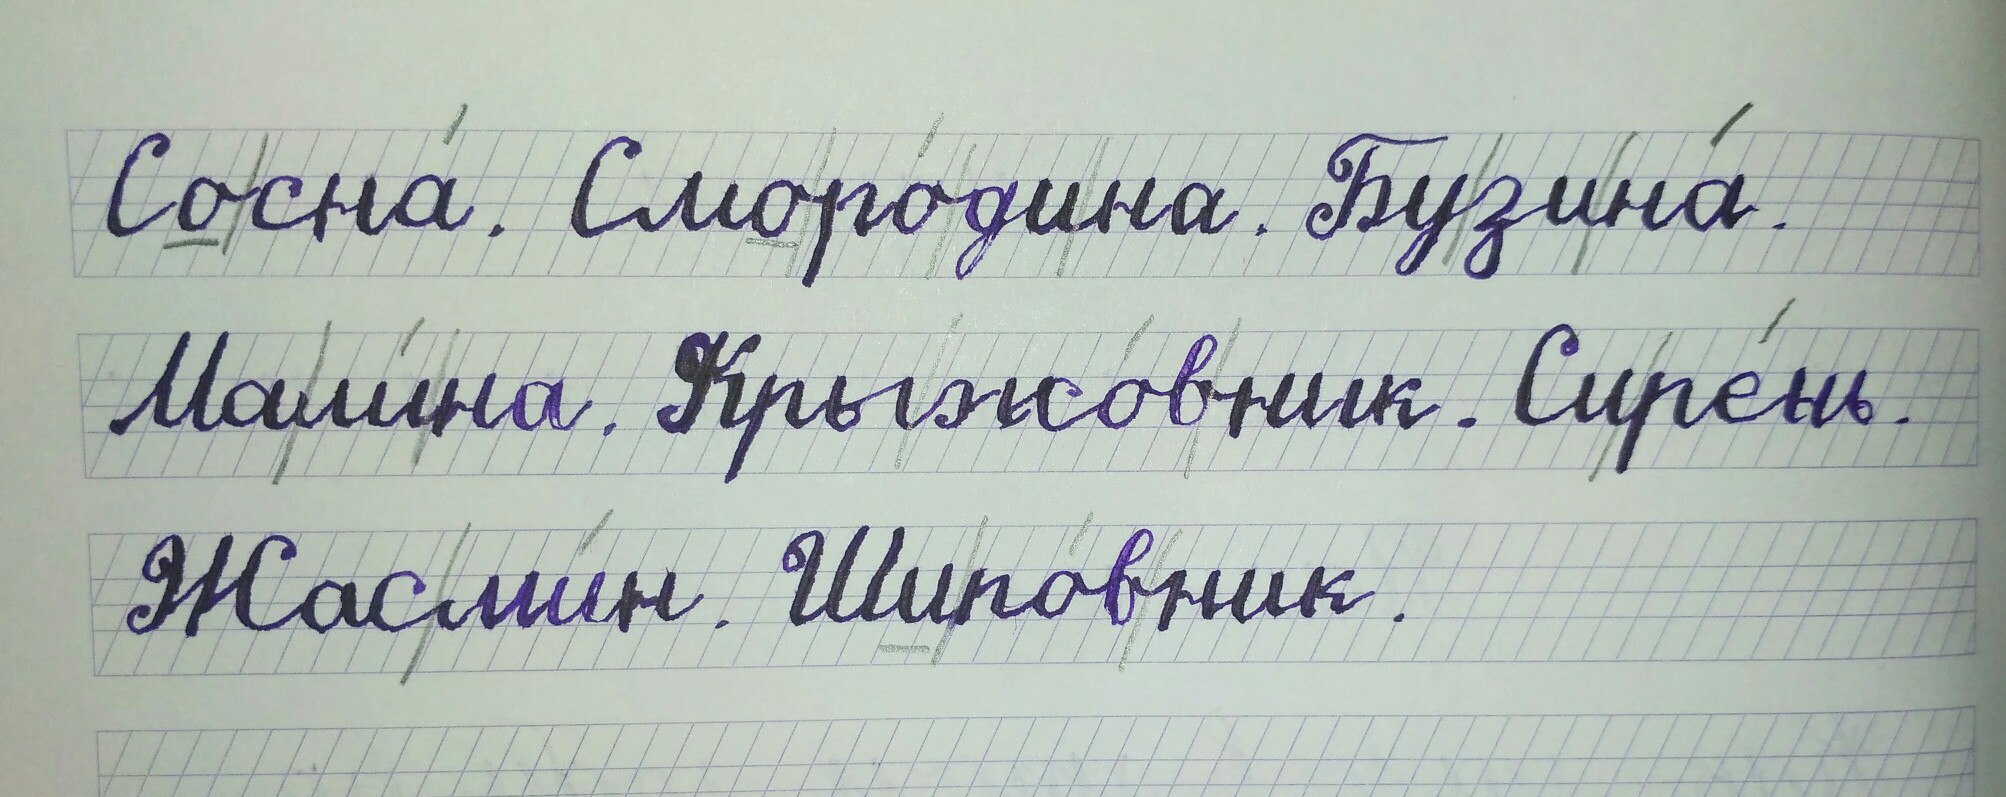 Сосна́. Сморо́дина. Бузина́.
Мали́на. Крыжо́вник. Сире́нь.
Жасми́н. Шипо́вник.